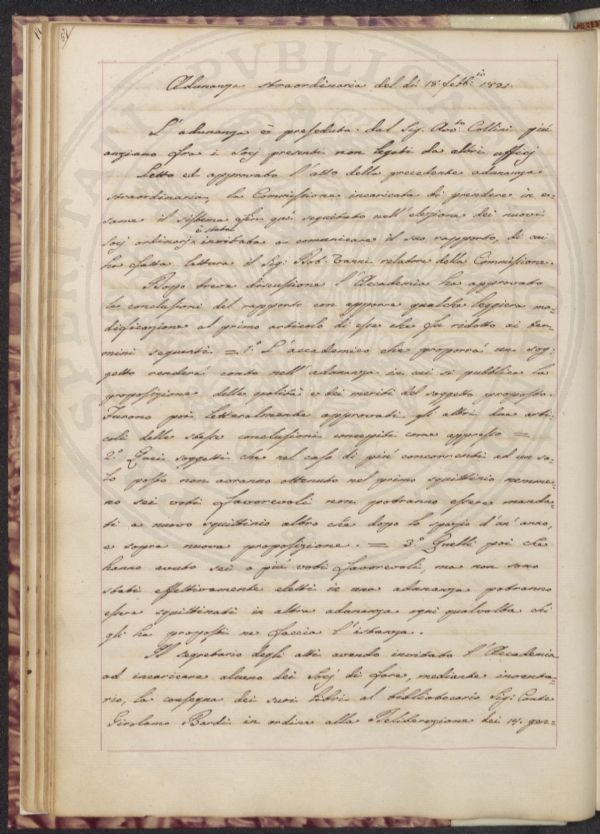 Adunanza straordinaria del dì 18 febb.io 1821.
L'adunanza è preseduta dal Sig. Avv.to Collini più
anziano fra i Socj presenti non legati da altri ufficj
Letto ed approvato l'atto della precedente adunanza
straordinaria, la Commissione incaricata di prendere in e=
same il sistema fin qui seguitato nell'elezione dei nuovi
è stata
Socj ordinarj invitata a comunicare il suo rapporto, di cui
ha fatta lettura il Sig. relatore della Commissione.
Dopo breve discussione l'Accademia ha approvato
le conclusioni del rapporto con apporre qualche leggiera mo=
dificazione al primo articolo di esse che fu ridotto ai ter=
mini seguenti. = 1.° L'accademico che proporrà un sog=
getto renderà conto nell'adunanza in cui si pubblica la
proposizione delle qualità e dei meriti del soggetto proposto.
Furono poi letteralmente approvati gli altri due arti=
coli delle stesse conclusioni concepiti come appresso =
2.° Quei soggetti che nel caso di più concorrenti ad un so=
lo posto non avranno ottenuto nel primo squittinio nemme=
no sei voti favorevoli non potranno essere manda=
ti a nuovo squittinio altro che dopo lo spazio d'un'anno,
e sopra nuova proposizione. = 3.° Quelli poi che
hanno avuto sei o più voti favorevoli, ma non sono
stati effettivamente eletti in una adunanza potranno
essere squittinati in altra adunanza ogni qualvolta chi
gli ha proposti ne faccia l'istanza.
Il segretario degli atti avendo invitato l'Accademia
ad incaricare alcuno dei Socj di fare, mediante inventa=
rio, la consegna dei suoi libri al bibliotecario Sig. Conte
Girolamo Bardi in ordine alla Deliberazione dei 14. gen=